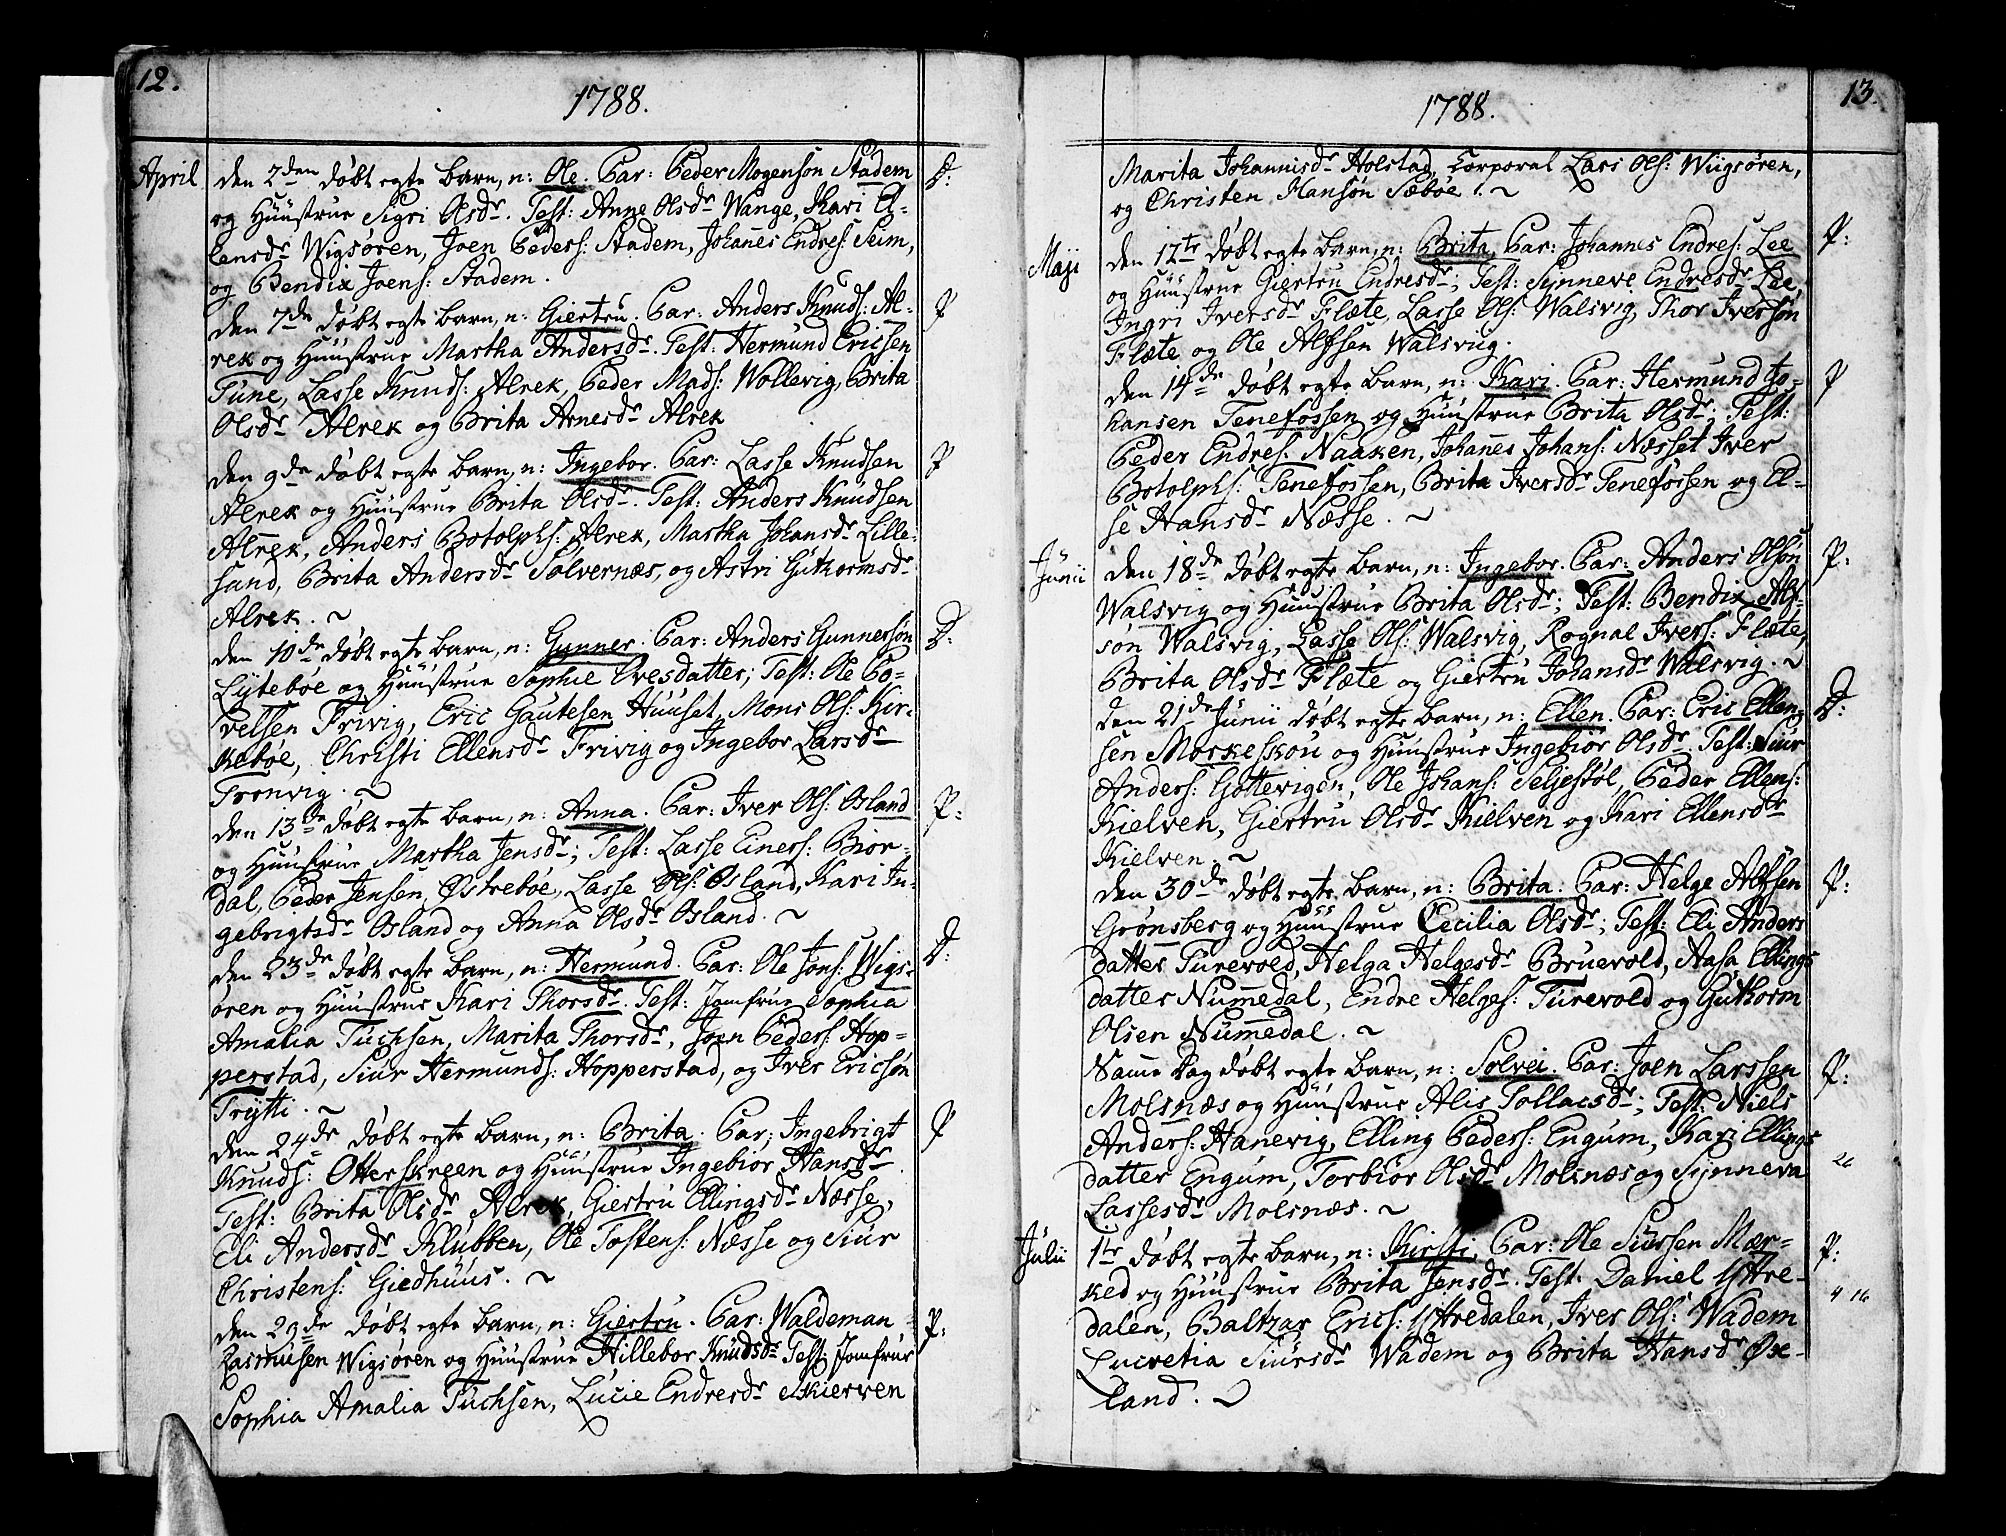 12.
1788.
April
den 2den døbt egte barn, n: Ole. Par: Peder Mogensøn Stadem
D:
og Hüüstrue Sigri Olsdr. Test: Anne Olsdr Wange, Kari El-
lensdr Wigsøren, Joen Peders: Stadem, Johanes Endres: Sem,
og Bendix Joens: Stadem.
den 7de døbt egte barn, n: Giertru. Par: Anders Knuds: Al-
P
rek og Hüüstrue Martha Andersdr. Test: Hermund Ericsen
Tüne, Lasse Knuds: Alrek, Peder Mads: Wollevig, Brita
Olsdr Alrek og Brita Arnesdr Alrek
den 9de døbt egte barn, n: Ingebor. Par: Lasse Knudsen
P
Alrek og Hüüstrue Brita Olsdr. Test: Anders Knudsen
Alrek, Anders Botolphs: Alrek, Martha Johansdr Lille-
sand, Brita Andersdr Solvernæs, og Astri Guthormsdr
Alrek. ~
den 10de døbt egte barn, n: Gunner. Par: Anders Gunnersøn
D:
Lytebøe og Hüüstrue Sophie Ivesdatter; Test: Ole Po-
velsen Frivig, Eric Gautesen Huuset, Mons Ols: Kir-
kebøe, Christi Ellensdr Frivig og Ingebor Larsdr
Tronvig. ~
den 13de døbt egte barn, n: Anna. Par: Iver Ols: Osland
P:
og Huustrue Martha Jensdr; Test: Lasse Einers: Bior-
dal, Peder Jensen Østrebøe, Lasse Ols: Osland, Kari In-
gebrigtsdr Osland og Anna Olsdr Osland. ~
den 23de døbt egte barn, n: Hermund. Par: Ole Jons: Wigs-
D:
øren og Huustrue Kari Thorsdr. Test: Jomfrue Sophia
Amalia Tuchsen, Marita Thorsdr, Joen Peders: Hop-
perstad, Siur Hermunds: Hopperstad, og Iver Ericsøn
Trytti. ~
den 24de døbt egte barn, n: Brita. Par; Ingebrigt
P
Knuds: Otterskreen og Hüüstrue Ingebior Hansdr.
Test: Brita Olsdr Alrek, Giertru Ellingsdr Næsse,
Eli Andersdr Klubben, Ole Tostens: Næsse og Siur
Christens: Giedhüüs. ~
den 29de døbt egte barn, n: Giertru. Par: Waldeman
P:
Rasmusen Wigsøren og Huustrue Hillebor Knudsdr Test: Jomfrue
Sophia Amalia Tüchsen, Lucie Endresdr Skierven
13.
1788.
Marita Johannisdr Holstad, Corporal Lars Ols: Wiigsøren,
og Christen Hansøn Sæbøe. ~
Maji
den 12te døbt egte barn, n: Brita, Par: Johannes Endres: Lee
P:
og Hüüstrue Giertru Endresdr; Test: Synneve Endresdr Lee,
Ingri Iversdr Flæte, Lasse Ols: Walsvig, Thor Iversøn
Flæte og Ole Alfsen Walsvug.
den 14de døbt egte barn, n: Kari. Par: Hermund Jo-
P
hansen Tenefossen og Huustrue Brita Olsdr; Test:
Peder Endres: Naaken, Johanes Johans: Næsset Iver
Botolphs: Tenefossen, Brita Iversdr Tenefossen og El-
se Hansdr Næsse. ~
Junii
den 18de døbt egte barn, n: Ingebor. Par: Anders Olsøn
P:
Walsvig og Huustrue Brita Olsdr; Test: Bendix Alf-
søn Walsvig, Lasse Ols: Walsvig, Rognal Ivers: Flæte,
Brita Olsdr Flæte og Giertru Johansdr Walsvig. ~
den 21de Junii døbt egte barn, n: Ellen. Par: Eric Ellen-
D:
sen Morkeskou og Huustrue Ingebiør Olsdr. Test: Siur
Anders: Gottevigen, Ole Johans: Seljestøl, Peder Ellens:
Kielven, Giertru Olsdr Kielven og Kari Ellensdr
Kielven. ~
den 30de døbt egte barn, n: Brita. Par: Helge Alfsen
P:
Grønsberg og Hüüstrue Cecilia Olsdr; Test: Eli Anders
datter Turevold, Helga Helgesdr Bruevold, Aasa Ellings
datter Nummedal, Endre Helges: Turevold og Guthorm
Olsen Nummedal. ~
Same Dag døbt egte barn, n: Solvei. Par: Joen Larssen
P:
Molsnæs og Hüüstrue Alis Tollacsdr; Test: Niels
Anders: Hanevig, Elling Peders: Engum, Kari Ellings
datter Engum, Torbiør Olsdr Molsnæs og Synneva
26
Lassesdr Molsnæs. ~
Julii
1te døbt egte barn, n: Kirsti. Par: Ole Siursen Mær-
P:
ked og Huustrue Brita Jensdr. Test: Daniel Yttre-
4 16
dalen, Baltzar Erics: Yttredalen, Iver Ols: Wadem
Lucretia Siursdr Wadem og Brita Hansdr Øxe-
land. ~